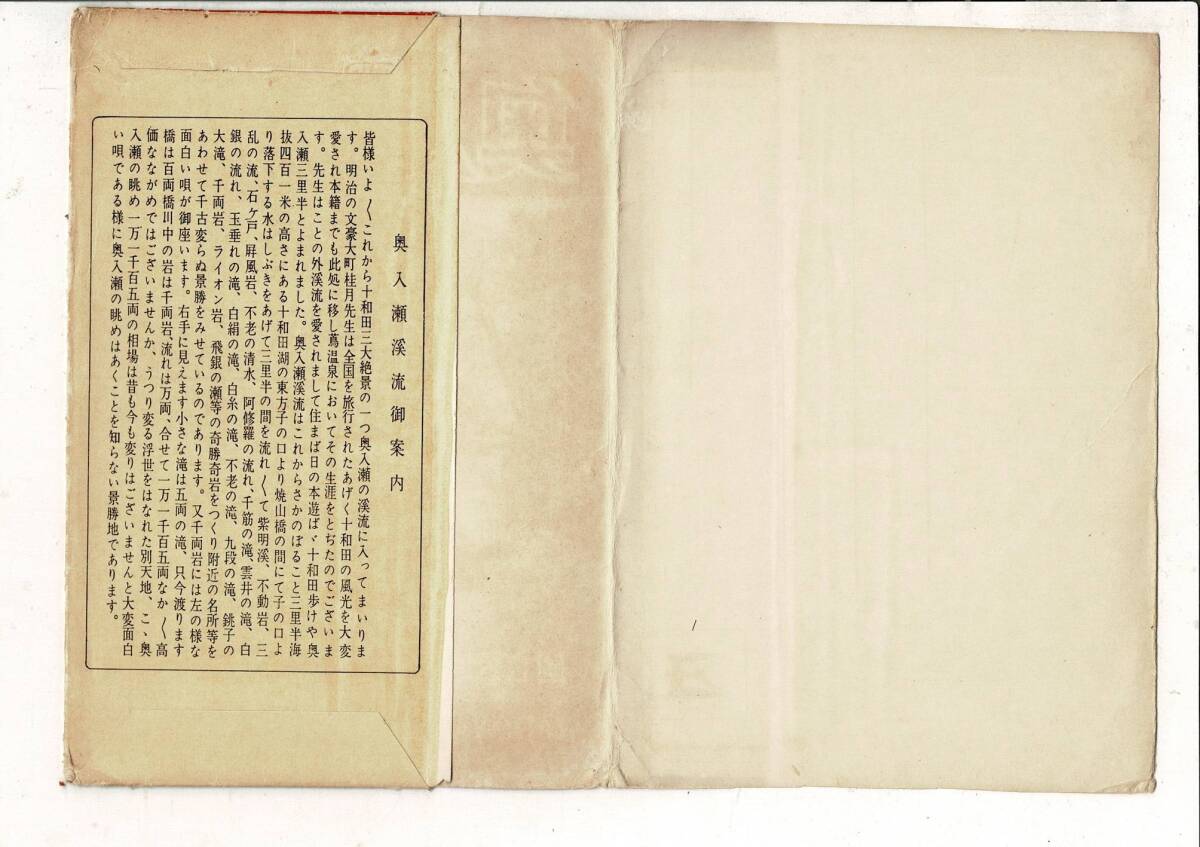 奥入瀬溪流御案内
皆様いよ〱これから十和田三大絶景の一つ奥入瀬の溪流に入ってまいりま
す。明治の文豪大町桂月先生は全国を旅行されたあげく十和田の風光を大変
愛され本籍までも此処に移し蔦温泉においてその生涯をとぢたのでございま
す。先生はことの外溪流を愛されまして住まば日の本遊ばゞ十和田歩けや奥
入瀬三里半とよまれました。奥入瀬溪流はこれからさかのぼること三里半海
抜四百一米の高さにある十和田湖の東方子の口より焼山橋の間にて子の口よ
り落下する水はしぶきをあげて三里半の間を流れ〱て紫明溪、不動岩、三
乱の流、石ケ戸、屛風岩、不老の清水、阿修羅の流れ、千筋の滝、雲井の滝、白
銀の流れ、玉垂れの滝、白絹の滝、白糸の滝、不老の滝、九段の滝、銚子の
大滝、千両岩、ライオン岩、飛銀の瀬等の奇勝奇岩をつくり附近の名所等を
あわせて千古変らぬ景勝をみせているのであります。又千両岩には左の様な
面白い唄が御座います。右手に見えます小さな滝は五両の滝、只今渡ります
橋は百両橋川中の岩は千両岩、流れは万両、合せて一万一千百五両なか〱高
価なながめではございませんか、うつり変る浮世をはなれた別天地、こゝ奥
入瀬の眺め一万一千百五両の相場は昔も今も変りはございませんと大変面白
い唄である様に奥入瀬の眺めはあくことを知らない景勝地であります。